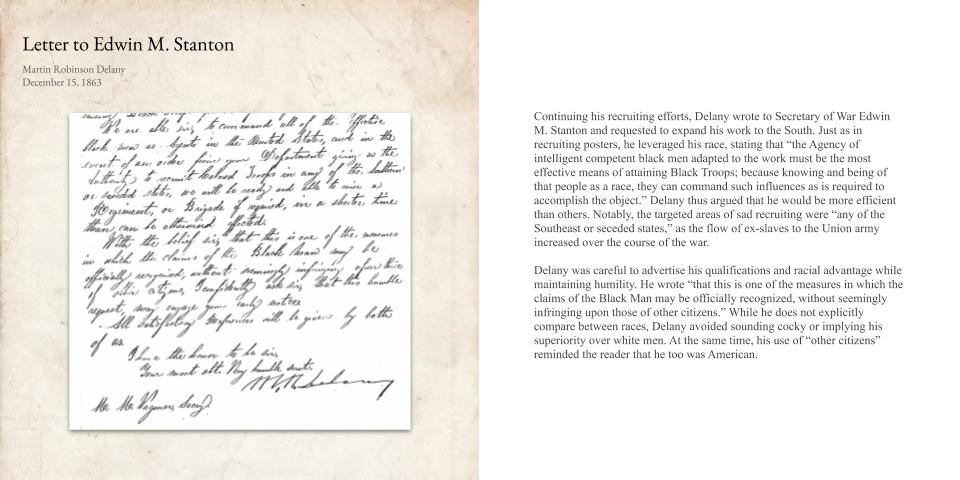 Letter to Edwin M. Stanton
Martin Robinson Delany
December 15, 1863
We are able sir, to command all of the effective
black men as Agents in the United States, and in the
event of an order from your Department giving us the
Authority to recruit Colored Troops in any of the Southern
or seceded states, we will be ready and able to raise a
Regiment, or Brigade if required, in a shorter time
than can be otherwise effected.
With the belief sir, that this is one of the measures
in which the claims of the Black Man may be
officially recognized, without seemingly infringing upon those
of other citizens, I confidently ask sir, that this humble
request, may engage your early notice
All satisfactory References will be given by both
of us
I have the honor to be sir,
Your most obt. Very humble servt.
M. R. Delany
Continuing his recruiting efforts, Delany wrote to Secretary of War Edwin
M. Stanton and requested to expand his work to the South. Just as in
recruiting posters, he leveraged his race, stating that “the Agency of
intelligent competent black men adapted to the work must be the most
effective means of attaining Black Troops; because knowing and being of
that people as a race, they can command such influences as is required to
accomplish the object.” Delany thus argued that he would be more efficient
than others. Notably, the targeted areas of sad recruiting were “any of the
Southeast or seceded states,” as the flow of ex-slaves to the Union army
increased over the course of the war.
Delany was careful to advertise his qualifications and racial advantage while
maintaining humility. He wrote “that this is one of the measures in which the
claims of the Black Man may be officially recognized, without seemingly
infringing upon those of other citizens.” While he does not explicitly
compare between races, Delany avoided sounding cocky or implying his
superiority over white men. At the same time, his use of “other citizens”
reminded the reader that he too was American.